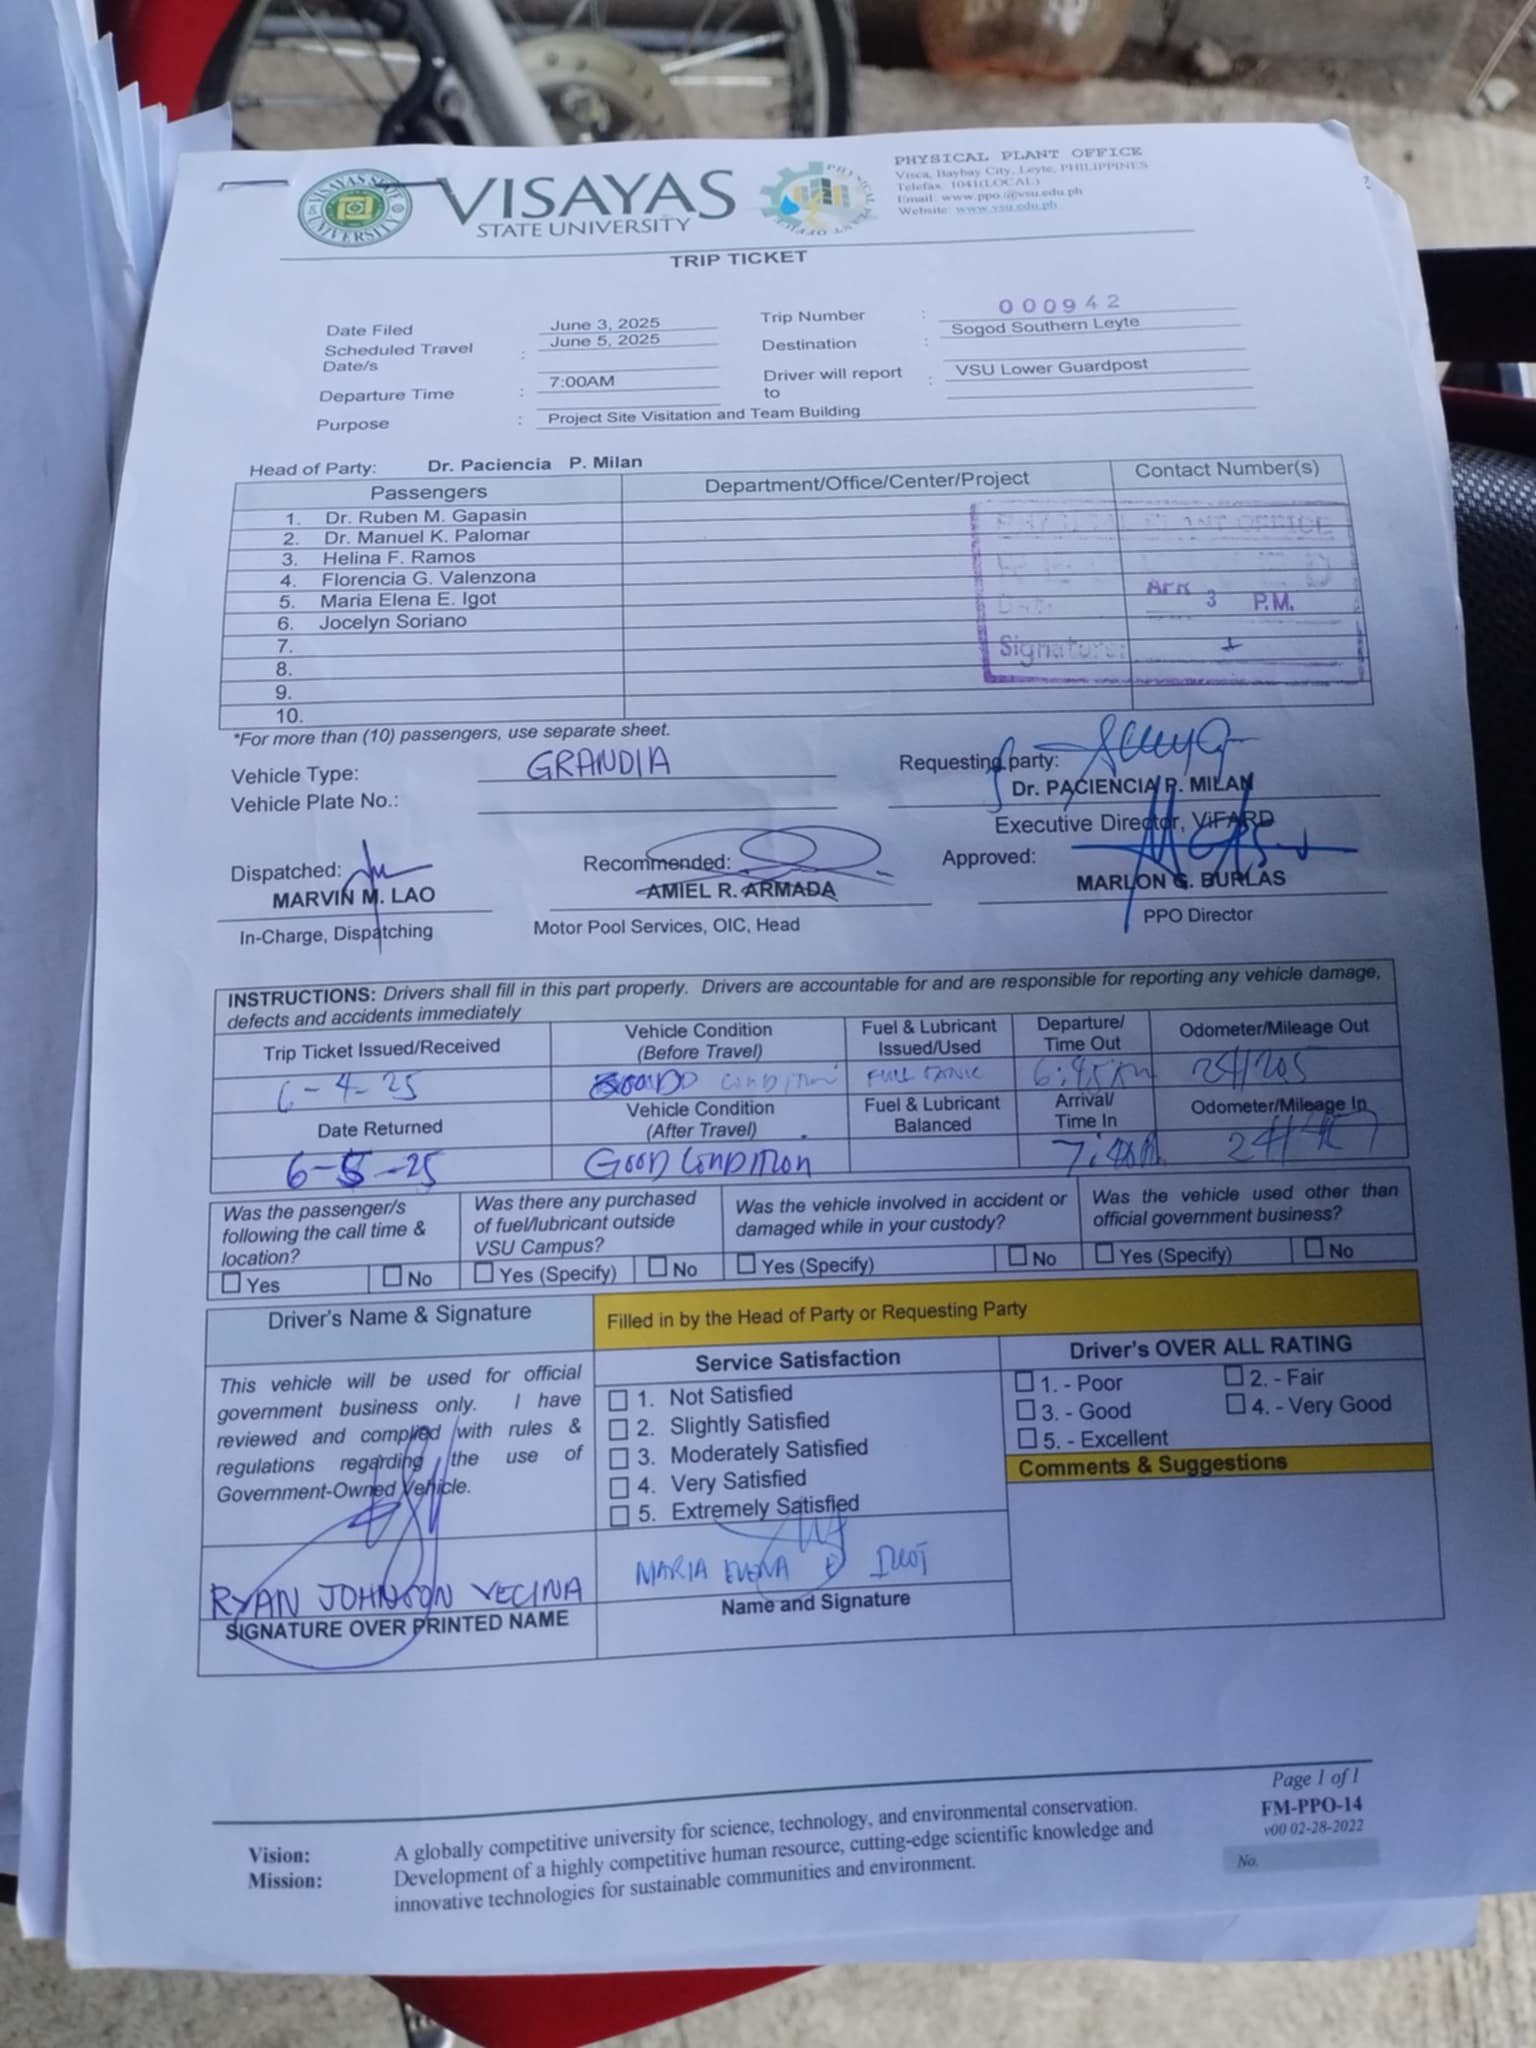 VISAYAS
STATE UNIVERSITY
PHYSICAL PLANT OFFICE
Visca, Baybay City, Leyte, PHILIPPINES
Telefax: 1041(LOCAL)
Email: www.ppo@vsu.edu.ph
Website: www.vsu.edu.ph
TRIP TICKET
Date Filed June 3, 2025 Trip Number : 000942
Scheduled Travel Date/s : June 5, 2025 Destination : Sogod Southern Leyte
Departure Time : 7:00AM Driver will report to : VSU Lower Guardpost
Purpose : Project Site Visitation and Team Building
Head of Party: Dr. Paciencia P. Milan
Passengers Department/Office/Center/Project Contact Number(s)
1. Dr. Ruben M. Gapasin
2. Dr. Manuel K. Palomar
3. Helina F. Ramos
4. Florencia G. Valenzona
5. Maria Elena E. Igot
6. Jocelyn Soriano
7.
8.
9.
10.
PHYSICAL PLANT OFFICE
Date:
3 P.M.
Signature:
*For more than (10) passengers, use separate sheet.
Vehicle Type: GRANDIA
Vehicle Plate No.:
Requesting party:
Dr. PACIENCIA P. MILAN
Executive Director, ViFARD
Dispatched:
MARVIN M. LAO
In-Charge, Dispatching
Recommended:
AMIEL R. ARMADA
Motor Pool Services, OIC, Head
Approved:
MARLON G. BURLAS
PPO Director
INSTRUCTIONS: Drivers shall fill in this part properly. Drivers are accountable for and are responsible for reporting any vehicle damage,
defects and accidents immediately
Trip Ticket Issued/Received Vehicle Condition (Before Travel) Fuel & Lubricant Issued/Used Departure/ Time Out Odometer/Mileage Out
6-4-25 CONDITION FULL TANK
Date Returned Vehicle Condition (After Travel) Fuel & Lubricant Balanced Arrival/ Time In Odometer/Mileage In
6-5-25 GOOD CONDITION
Was the passenger/s following the call time & location?
Yes No
Was there any purchased of fuel/lubricant outside VSU Campus?
Yes (Specify) No
Was the vehicle involved in accident or damaged while in your custody?
Yes (Specify) No
Was the vehicle used other than official government business?
Yes (Specify) No
Driver's Name & Signature
This vehicle will be used for official
government business only. I have
reviewed and complied with rules &
regulations regarding the use of
Government-Owned Vehicle.
RYAN JOHNSON VECINA
SIGNATURE OVER PRINTED NAME
Filled in by the Head of Party or Requesting Party
Service Satisfaction
1. Not Satisfied
2. Slightly Satisfied
3. Moderately Satisfied
4. Very Satisfied
5. Extremely Satisfied
MARIA ELENA E IGOT
Name and Signature
Driver's OVER ALL RATING
1. - Poor 2. - Fair
3. - Good 4. - Very Good
5. - Excellent
Comments & Suggestions
Page 1 of 1
FM-PPO-14
v00 02-28-2022
No.
Vision: A globally competitive university for science, technology, and environmental conservation.
Mission: Development of a highly competitive human resource, cutting-edge scientific knowledge and
innovative technologies for sustainable communities and environment.